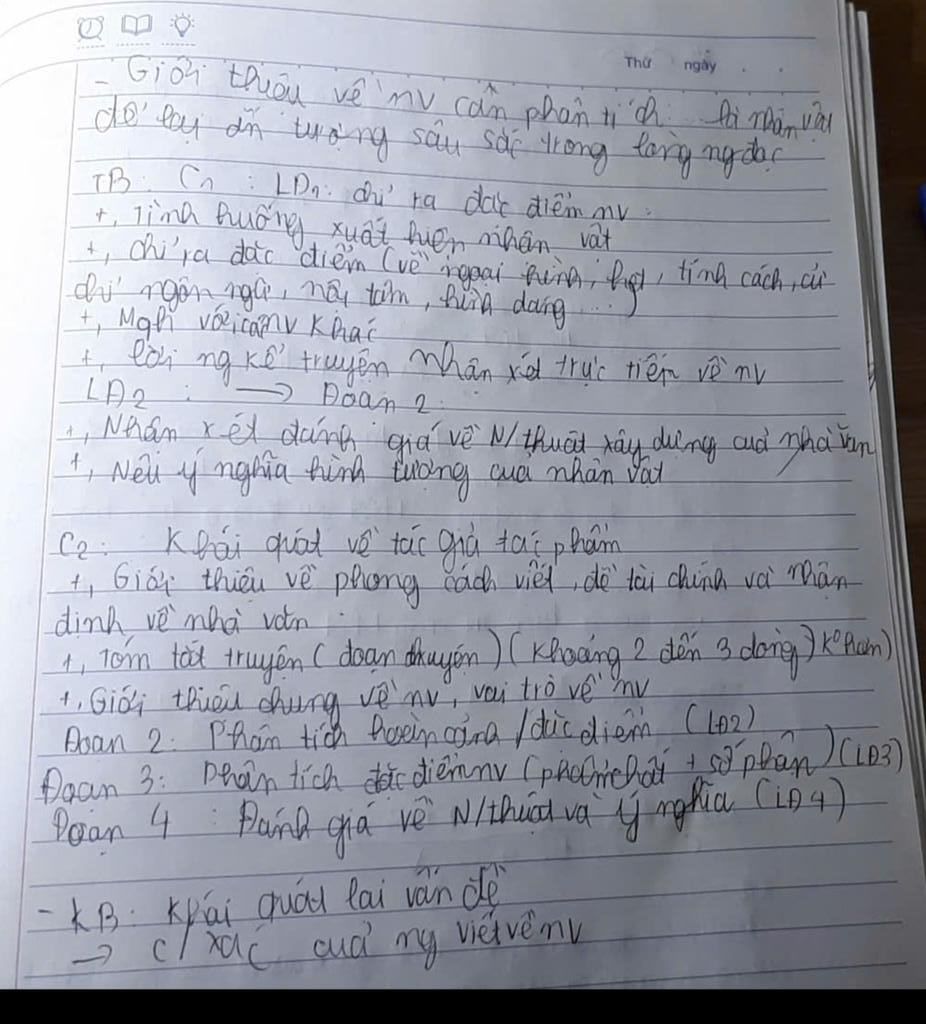 Thứ ngày
- Giới thiệu về nv cần phân tích ... là nhân vật
để lại ấn tượng sâu sắc trong lòng ng đọc
TB: C1 : LĐ1: chỉ ra đặc điểm nv:
+, Tình huống xuất hiện nhân vật
+, chỉ ra đặc điểm (về ngoại hình, hđ, tính cách, cử
chỉ ngôn ngữ, nội tâm, hình dáng ...)
+, Mqh với các nv khác
+, lời ng kể truyện nhân xét trực tiếp về nv
LĐ2 : → Đoạn 2:
+, Nhân xét đánh giá về N/thuật xây dựng của nhà văn
+, Nêu ý nghĩa hình tượng của nhân vật
C2: Khái quát về tác giả tác phẩm
+, Giới thiệu về phong cách viết, đề tài chính và nhận
định về nhà văn
+, Tóm tắt truyện (đoạn chuyện) (khoảng 2 đến 3 dòng)
+, Giới thiệu chung về nv, vai trò về nv
Đoạn 2: Phân tích hoàn cảnh /đặc điểm (LĐ2)
Đoạn 3: Phân tích đặc điểm nv (phẩm chất + số phận) (LĐ3)
Đoạn 4 : Đánh giá về N/thuật và ý nghĩa (LĐ4)
- KB: Khái quát lại vấn đề
→ C/xúc của ng viết về nv